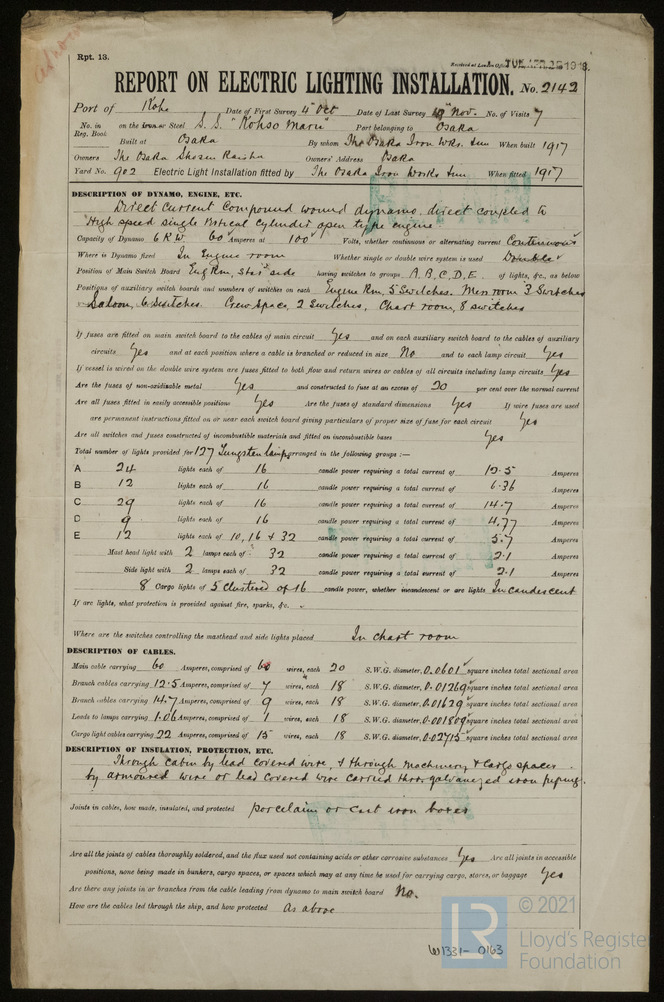 Rpt. 13.
Received at London Office TUE. APR. 1918.
REPORT ON ELECTRIC LIGHTING INSTALLATION. No. 2142
Port of Kobe Date of First Survey 4th Oct Date of Last Survey 19th Nov. No. of Visits 7
No. in Reg. Book on the Iron or Steel S.S. "Kohso Maru" Port belonging to Osaka
Built at Osaka By whom The Osaka Iron Wks. Ltd When built 1917
Owners The Osaka Shosen Kaisha Owners' Address Osaka
Yard No. 902 Electric Light Installation fitted by The Osaka Iron Works Ltd When fitted 1917
DESCRIPTION OF DYNAMO, ENGINE, ETC.
Direct Current Compound wound dynamo, direct coupled to
High speed single Vertical Cylinder open type engine
Capacity of Dynamo 6 KW 60 Amperes at 100 Volts, whether continuous or alternating current Continuous
Where is Dynamo fixed In Engine room Whether single or double wire system is used Double
Position of Main Switch Board Eng Rm, Star'd side having switches to groups A, B, C, D, E of lights, &c., as below
Positions of auxiliary switch boards and numbers of switches on each Engine Rm, 5 Switches. Mess room 3 Switches
Saloon, 6 Switches. Crew Space, 2 Switches, Chart room, 8 switches
If fuses are fitted on main switch board to the cables of main circuit Yes and on each auxiliary switch board to the cables of auxiliary
circuits Yes and at each position where a cable is branched or reduced in size No and to each lamp circuit Yes
If vessel is wired on the double wire system are fuses fitted to both flow and return wires or cables of all circuits including lamp circuits Yes
Are the fuses of non-oxidizable metal Yes and constructed to fuse at an excess of 20 per cent over the normal current
Are all fuses fitted in easily accessible positions Yes Are the fuses of standard dimensions Yes If wire fuses are used
are permanent instructions fitted on or near each switch board giving particulars of proper size of fuse for each circuit Yes
Are all switches and fuses constructed of incombustible materials and fitted on incombustible bases Yes
Total number of lights provided for 127 Tungsten lamps arranged in the following groups :—
A 24 lights each of 16 candle power requiring a total current of 12.5 Amperes
B 12 lights each of 16 candle power requiring a total current of 6.36 Amperes
C 29 lights each of 16 candle power requiring a total current of 14.7 Amperes
D 9 lights each of 16 candle power requiring a total current of 4.77 Amperes
E 12 lights each of 10, 16 & 32 candle power requiring a total current of 5.7 Amperes
Mast head light with 2 lamps each of 32 candle power requiring a total current of 2.1 Amperes
Side light with 2 lamps each of 32 candle power requiring a total current of 2.1 Amperes
8 Cargo lights of 5 Clustered of 16 candle power, whether incandescent or arc lights Incandescent
If arc lights, what protection is provided against fire, sparks, &c.
Where are the switches controlling the masthead and side lights placed In chart room
DESCRIPTION OF CABLES.
Main cable carrying 60 Amperes, comprised of 60 wires, each 20 S.W.G. diameter, 0.0601 square inches total sectional area
Branch cables carrying 12.5 Amperes, comprised of 7 wires, each 18 S.W.G. diameter, 0.01269 square inches total sectional area
Branch cables carrying 14.7 Amperes, comprised of 9 wires, each 18 S.W.G. diameter, 0.01629 square inches total sectional area
Leads to lamps carrying 1.06 Amperes, comprised of 1 wires, each 18 S.W.G. diameter, 0.001809 square inches total sectional area
Cargo light cables carrying 22 Amperes, comprised of 15 wires, each 18 S.W.G. diameter, 0.02715 square inches total sectional area
DESCRIPTION OF INSULATION, PROTECTION, ETC.
Through cabin by lead covered wire, & through machinery & cargo spaces
by armoured wire or lead covered wire carried thro. galvanized iron piping.
Joints in cables, how made, insulated, and protected porcelain or cast iron boxes
Are all the joints of cables thoroughly soldered, and the flux used not containing acids or other corrosive substances Yes Are all joints in accessible
positions, none being made in bunkers, cargo spaces, or spaces which may at any time be used for carrying cargo, stores, or baggage Yes
Are there any joints in or branches from the cable leading from dynamo to main switch board No.
How are the cables led through the ship, and how protected As above
W1331-0163
© 2021
LR
Lloyd's Register
Foundation